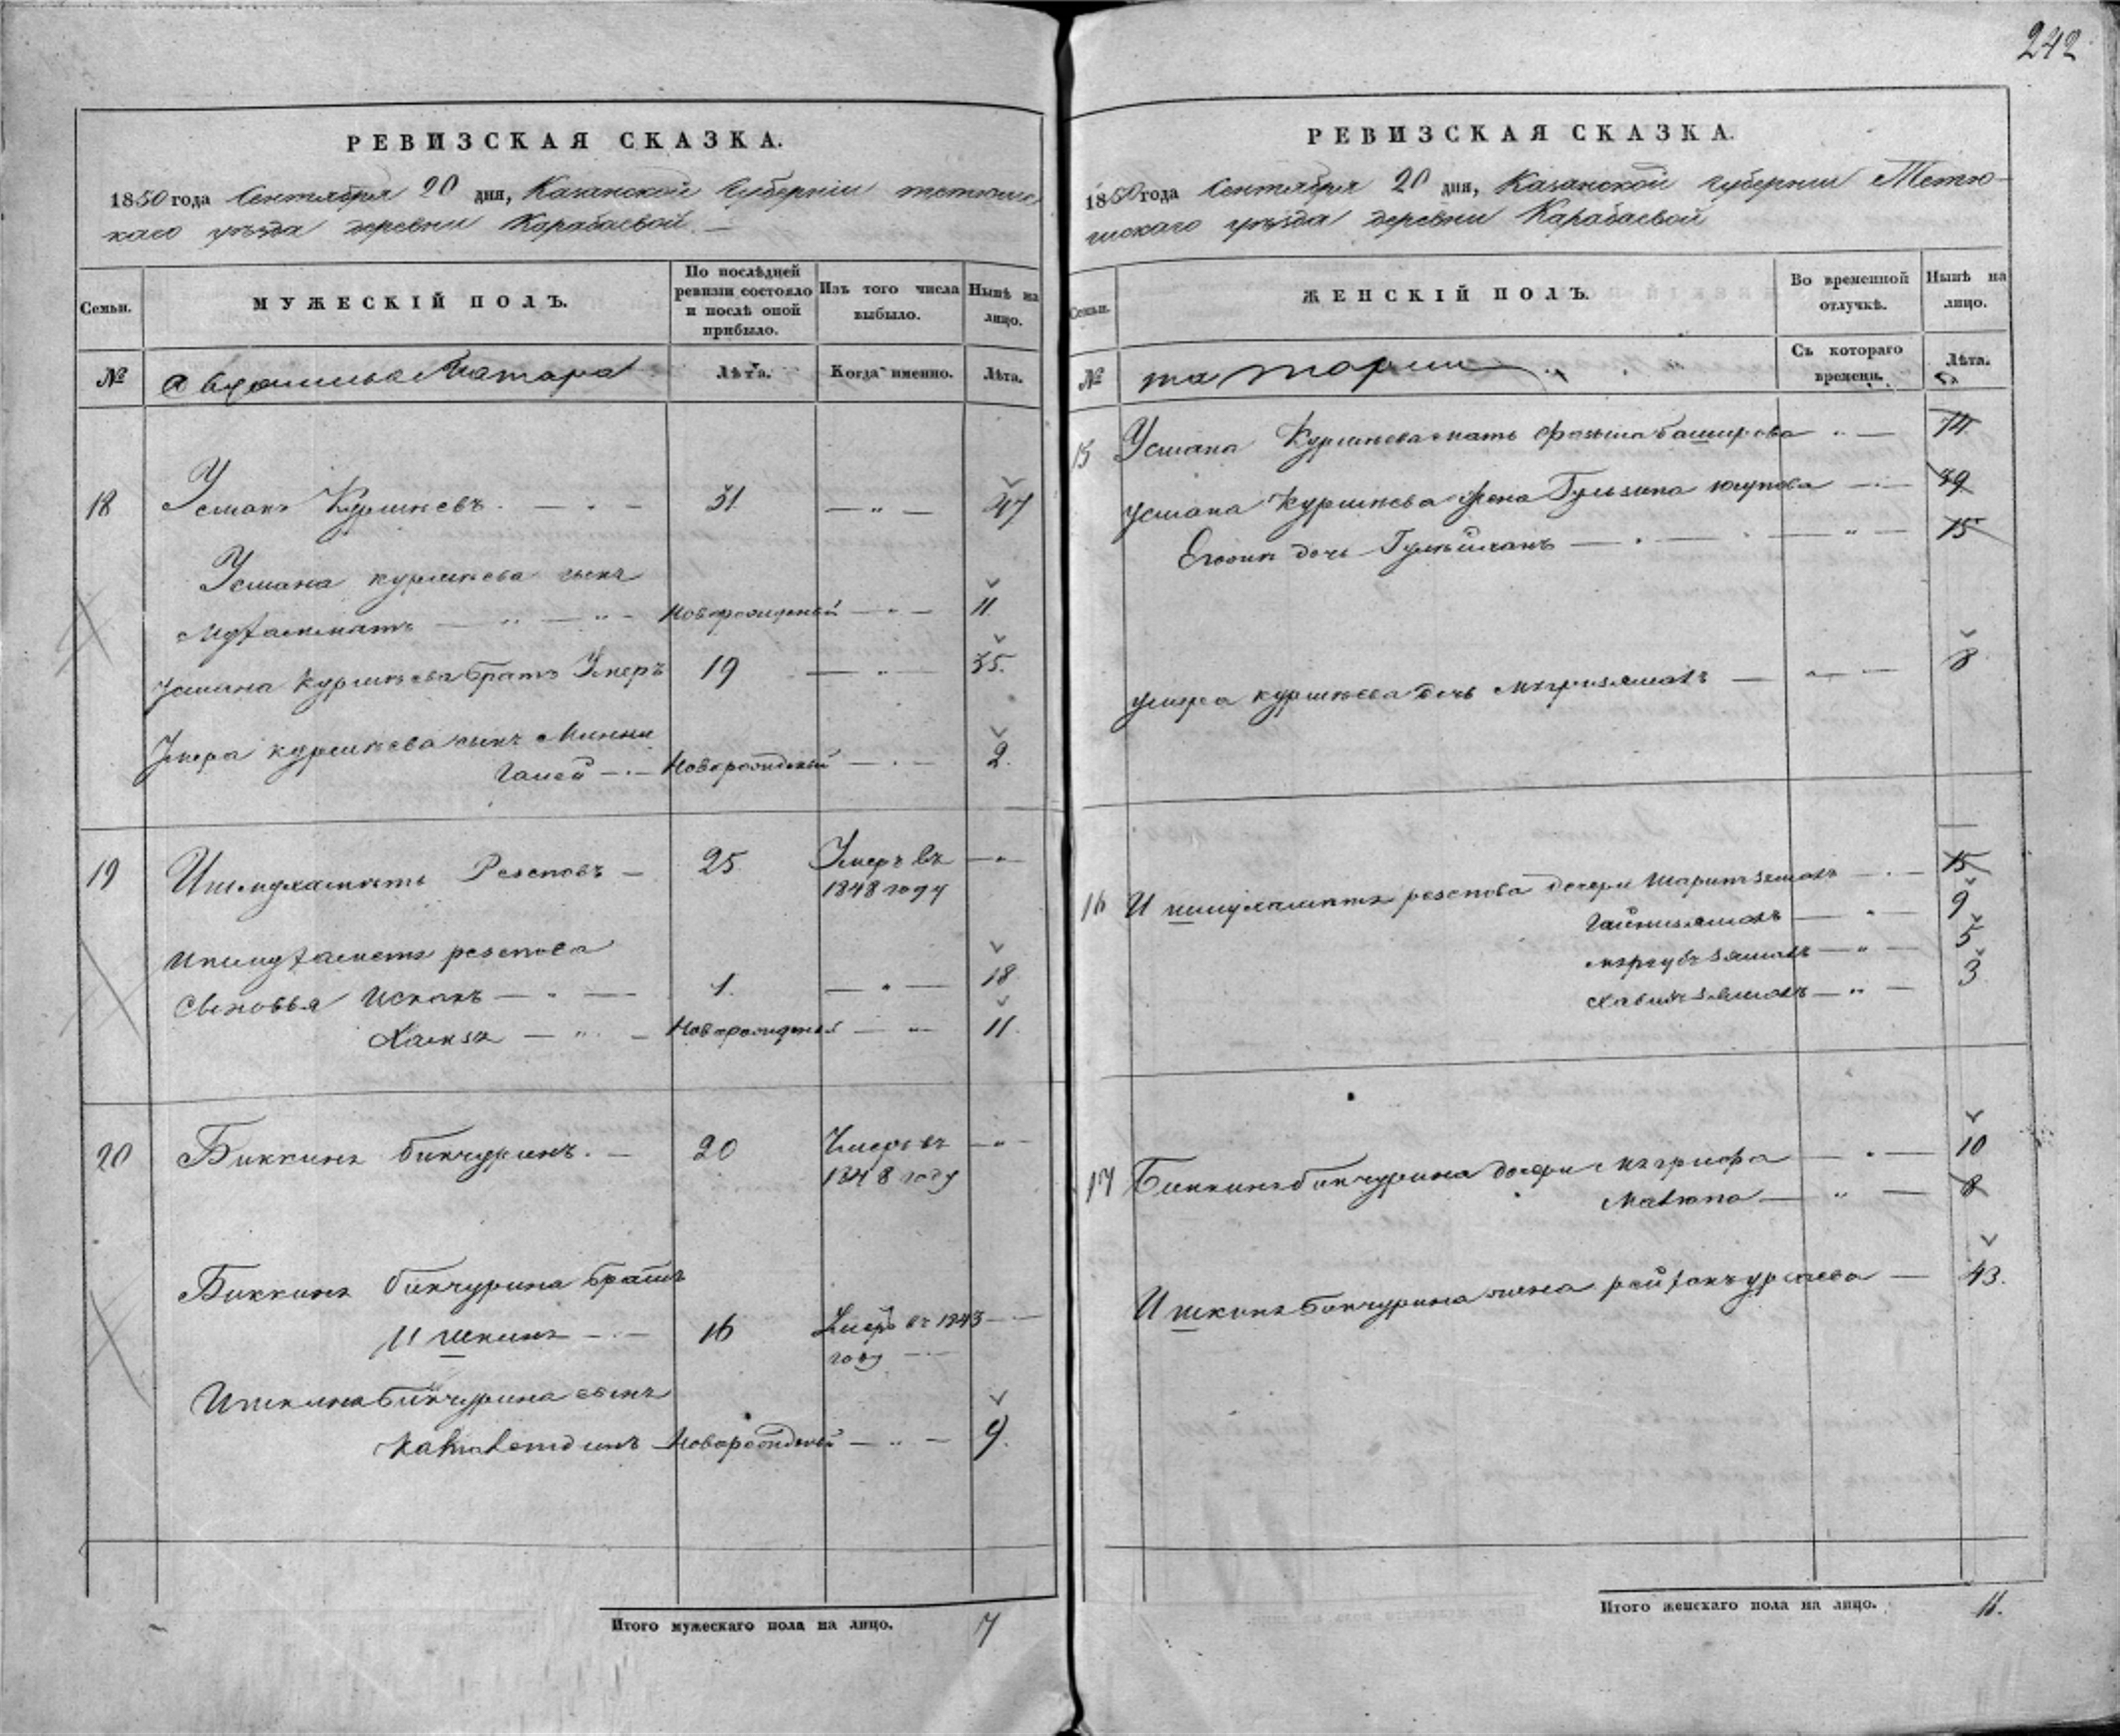 242
РЕВИЗСКАЯ СКАЗКА.
1850 года Сентября 20 дня, Казанской Губернiи тетюшс
каго уѣзда деревни Карабаевой
Семьи.
МУЖЕСКІЙ ПОЛЪ.
По послѣдней ревизіи состояло и послѣ оной прибыло.
Изъ того числа выбыло.
Нынѣ на лицо.
№
Татара
Лѣта.
Когда именно.
Лѣта.
18 Усманъ Курмѣевъ. — 31 — „ — 47
Усмана курмѣева сынъ
Новорожденый — „ — 11.
Усмана курмѣева братъ Умеръ 19 — „ — 35.
Умера курмѣева сынъ Минни
Галей — Новорожденый — „ — 2.
19 Ишмухаметь Резеповъ — 25 Умеръ въ — „
1848 году
Ишмухаметъ резепова
Сыновья Исхакъ — „ — 1. — „ — 18
Хамза — „ — Новорожденый — „ 11.
20 Биккинъ бикчуринъ. — 20 Умеръ въ — „ —
1848 году
Биккинъ бикчурина братъ
Ишкинъ — 16 Умеръ въ 1843 —
году —
Ишкина бикчурина сынъ
Новорожденый — „ — 9.
Итого мужескаго пола на лицо. 7
РЕВИЗСКАЯ СКАЗКА.
1850 года Сентября 20 дня, Казанской губернiи Тетю-
шскаго уѣзда деревни Карабаевой
Семьи.
ЖЕНСКІЙ ПОЛЪ.
Во временной отлучкѣ.
Нынѣ на лицо.
№
татарки
Съ котораго времени.
Лѣта.
15 Усмана Курмѣева мать баширова „ — 74
Усмана Курмѣева жена Гульзипа юсупова — 39
Егоже дочь — „ — 15
Умера курмѣева дочь — „ — 8
16 Ишмухаметъ резепова дочери — 15
— „ — 9
— „ — 5
— „ — 3
17 Биккинъ бикчурина дочери — „ — 10
— „ — 8
Ишкинъ бикчурина жена — 43.
Итого женскаго пола на лицо. 11.